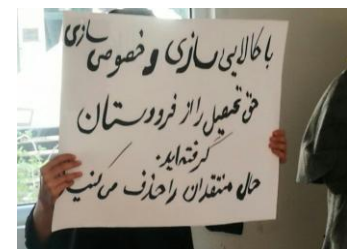 با کالایی سازی و خصوصی سازی
حق تحصیل را از فرودستان
گرفته اید.
حال منتقدان را حذف می کنید